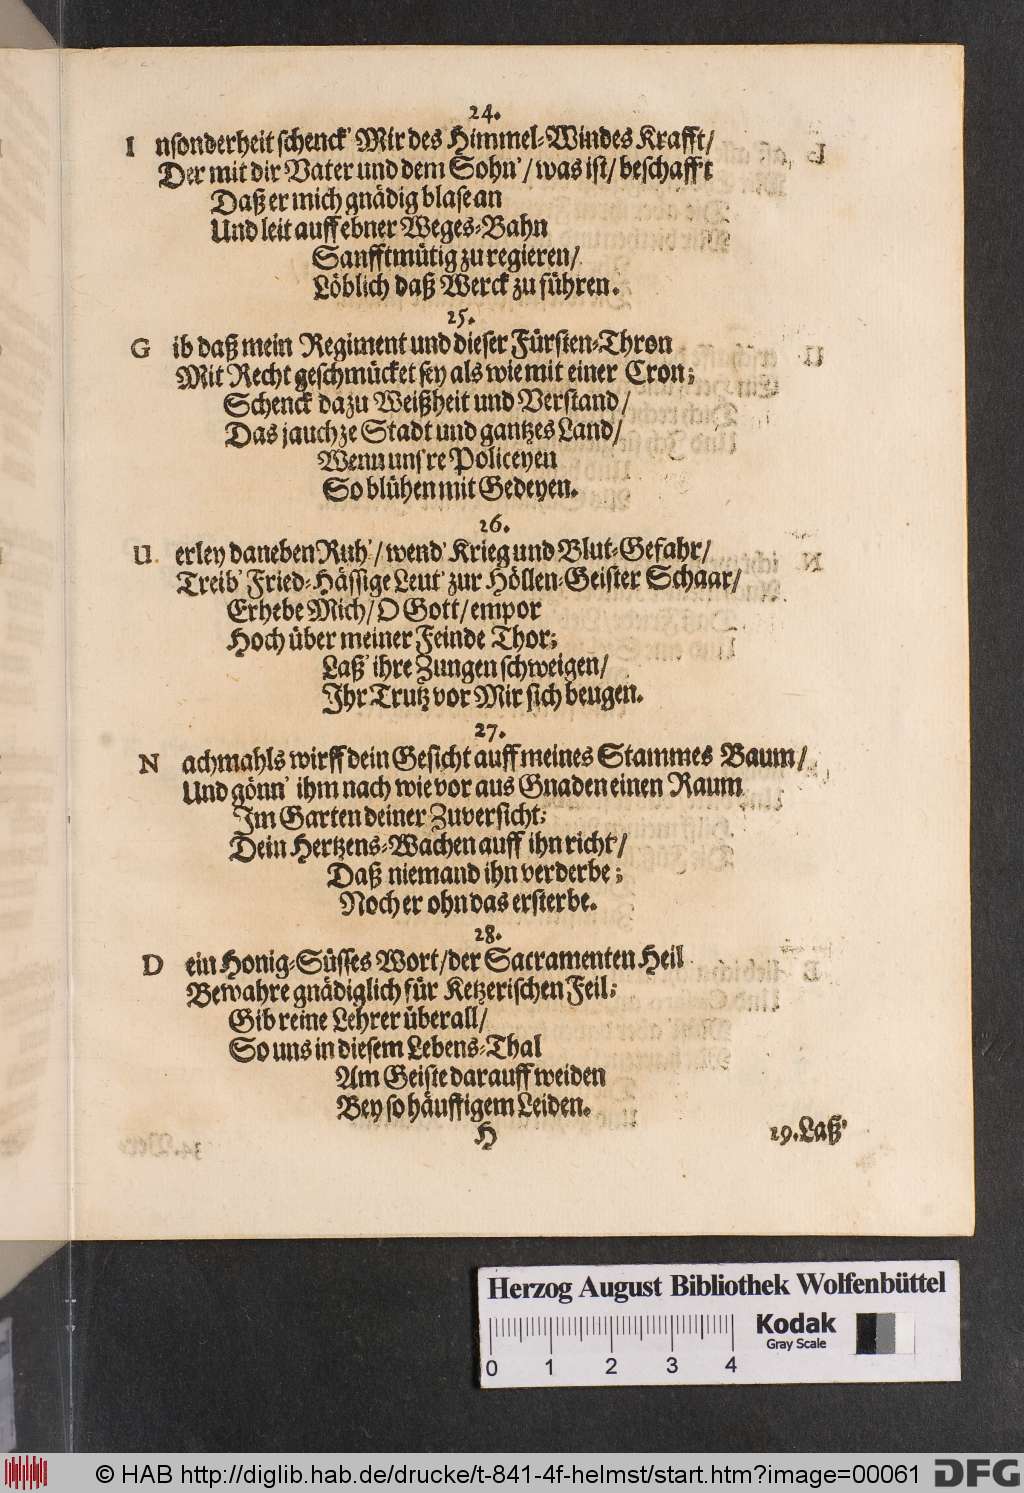 24.
I nsonderheit schenck' Mir des Himmel-Windes Krafft/
Der mit dir Vater und dem Sohn'/ was ist/ beschafft
Daß er mich gnädig blase an
Und leit auff ebner Weges-Bahn
Sanfftmütig zu regieren/
Löblich daß Werck zu führen.
25.
G ib daß mein Regiment und dieser Fürsten-Thron
Mit Recht geschmücket sey als wie mit einer Cron;
Schenck dazu Weißheit und Verstand/
Das jauchze Stadt und gantzes Land/
Wenn uns're Policeyen
So blühen mit Gedeyen.
26.
U erley daneben Ruh'/ wend' Krieg und Blut-Gefahr/
Treib' Fried-Hässige Leut' zur Höllen-Geister Schaar/
Erhebe Mich/ O Gott/ empor
Hoch über meiner Feinde Thor;
Laß' ihre Zungen schweigen/
Ihr Trutz vor Mir sich beugen.
27.
N achmahls wirff dein Gesicht auff meines Stammes Baum/
Und gönn' ihm nach wie vor aus Gnaden einen Raum
Im Garten deiner Zuversicht;
Dein Hertzens-Wachen auff ihn richt'/
Daß niemand ihn verderbe;
Noch er ohn das ersterbe.
28.
D ein Honig-Süsses Wort/ der Sacramenten Heil
Bewahre gnädiglich für Ketzerischen Feil;
Gib reine Lehrer überall/
So uns in diesem Lebens-Thal
Am Geiste darauff weiden
Bey so häuffigem Leiden.
H 29. Laß'
Herzog August Bibliothek Wolfenbüttel
Kodak
Gray Scale
0 1 2 3 4
© HAB http://diglib.hab.de/drucke/t-841-4f-helmst/start.htm?image=00061 DFG